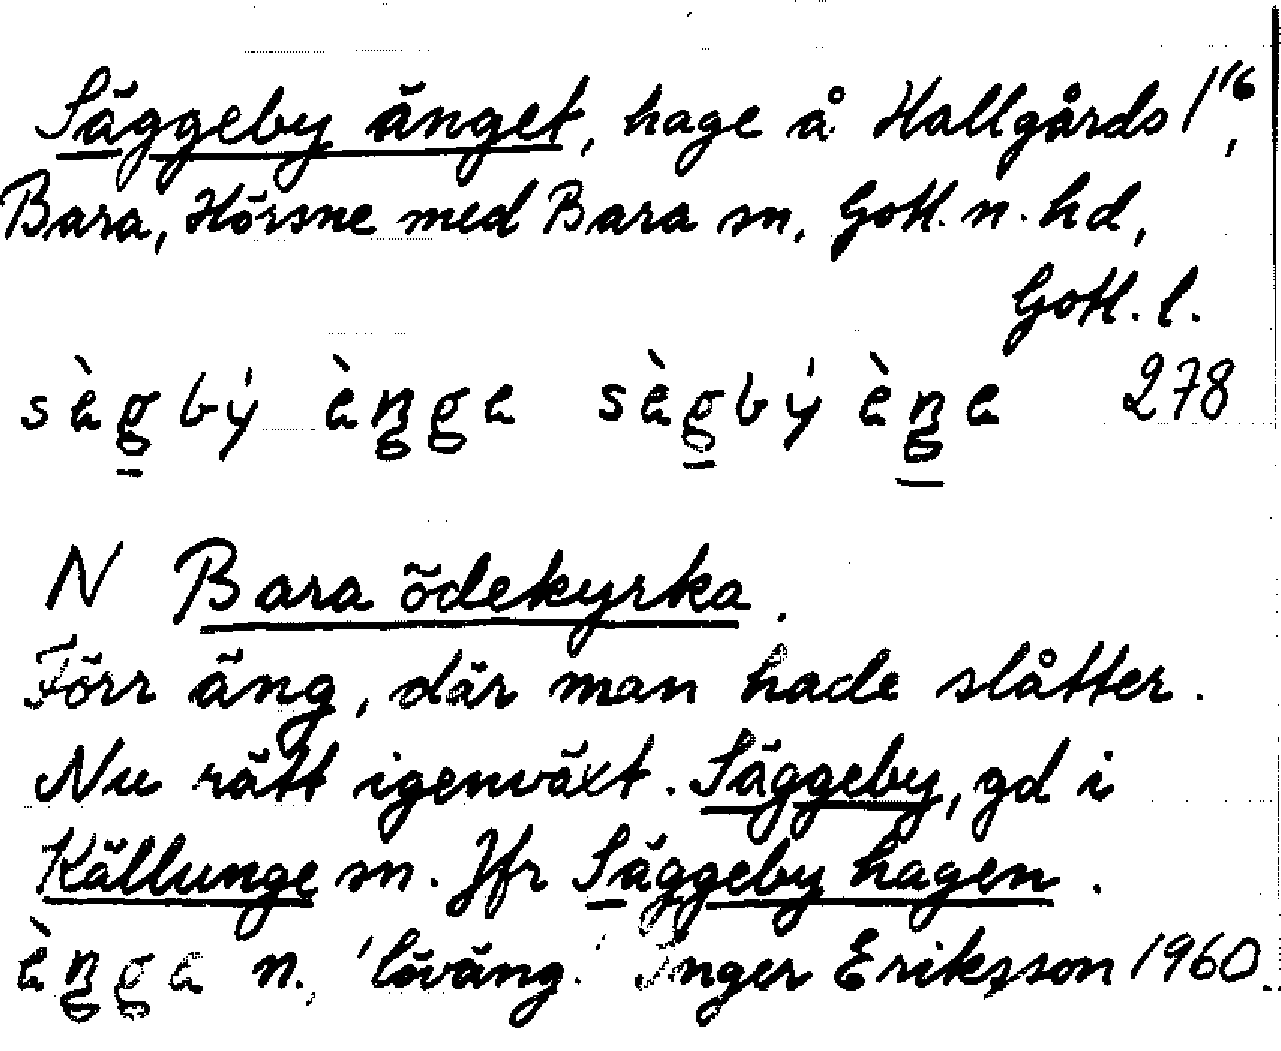 Säggeby änget, hage å Hallgårds 1/16,
Bara, Hörsne med Bara sn, Gotl. n. hd,
Gotl. l.
sègbý ènge sègbý ènge 278
N Bara ödekyrka.
Förr äng, där man hade slåtter.
Nu rätt igenväxt. Säggeby, gd i
Källunge sn. Jfr Säggeby hagen.
ènge n., 'löväng.' Inger Eriksson 1960